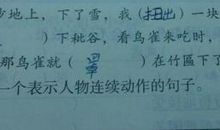 沙地上，下了雪，我（扫出）一块
）下秕谷，看鸟雀来吃时，
那鸟雀就（罩）在竹匾下
一个表示人物连续动作的句子。